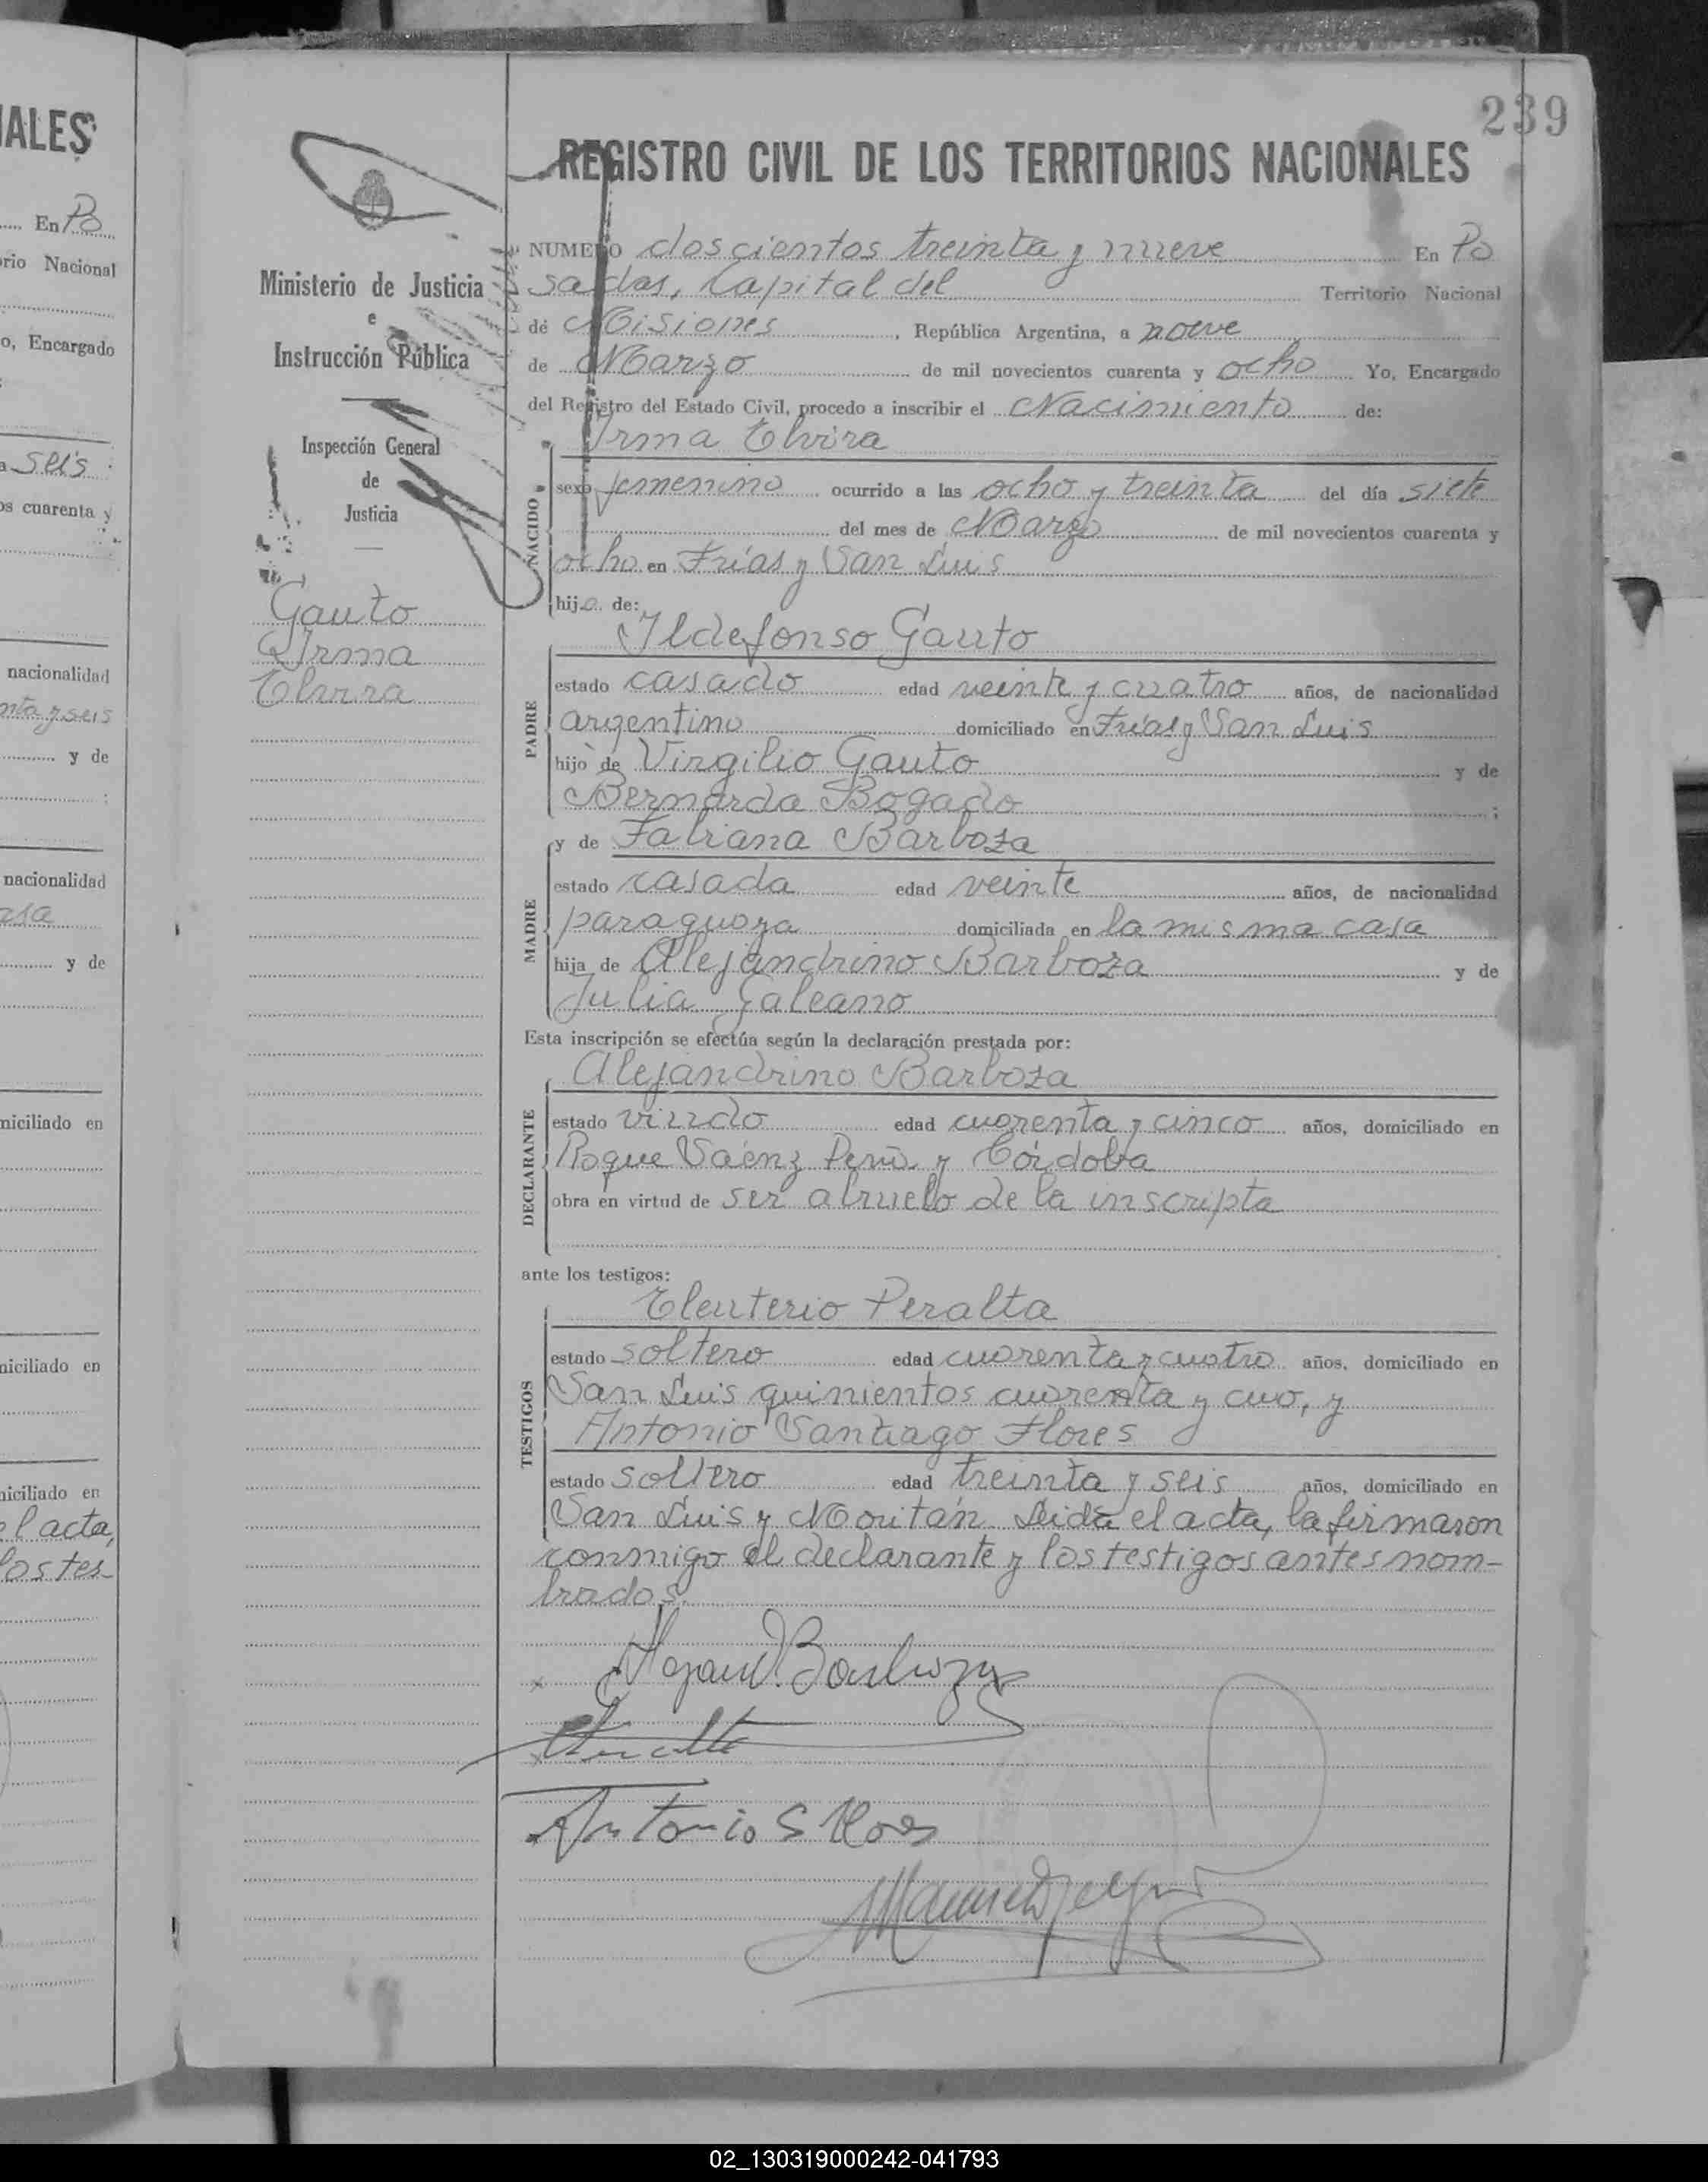 IALES
En Po
rio Nacional
o, Encargado
a seis
os cuarenta y
nacionalidad
nta y seis
y de
nacionalidad
asa
y de
miciliado en
niciliado en
niciliado en
el acta,
los tes-
239
Ministerio de Justicia
e
Instrucción Pública
Inspección General
de
Justicia
Gauto
Irma
Elvira
REGISTRO CIVIL DE LOS TERRITORIOS NACIONALES
NUMERO doscientos treinta y nueve En Po
sadas, Capital del Territorio Nacional
de Misiones, República Argentina, a nueve
de Marzo de mil novecientos cuarenta y ocho Yo, Encargado
del Registro del Estado Civil, procedo a inscribir el Nacimiento de:
Irma Elvira
NACIDO
sexo femenino ocurrido a las ocho y treinta del día siete
del mes de Marzo de mil novecientos cuarenta y
ocho en Frías y San Luis
hija de:
Ildefonso Gauto
PADRE
estado casado edad veinte y cuatro años, de nacionalidad
argentino domiciliado en Frías y San Luis
hijo de Virgilio Gauto y de
Bernarda Bogado ;
y de Fabiana Barboza
MADRE
estado casada edad veinte años, de nacionalidad
paraguaya domiciliada en la misma casa
hija de Alejandrino Barboza y de
Julia Galeano
Esta inscripción se efectúa según la declaración prestada por:
Alejandrino Barboza
DECLARANTE
estado viudo edad cuarenta y cinco años, domiciliado en
Roque Sáenz Peña y Córdoba
obra en virtud de ser abuelo de la inscripta
ante los testigos:
Eleuterio Peralta
TESTIGOS
estado soltero edad cuarenta y cuatro años, domiciliado en
San Luis quinientos cuarenta y cuo, y
Antonio Santiago Flores
estado soltero edad treinta y seis años, domiciliado en
San Luis y Moritán. Leída el acta, la firmaron
conmigo el declarante y los testigos antes nom-
brados.
Antonio S Flores
02_130319000242-041793